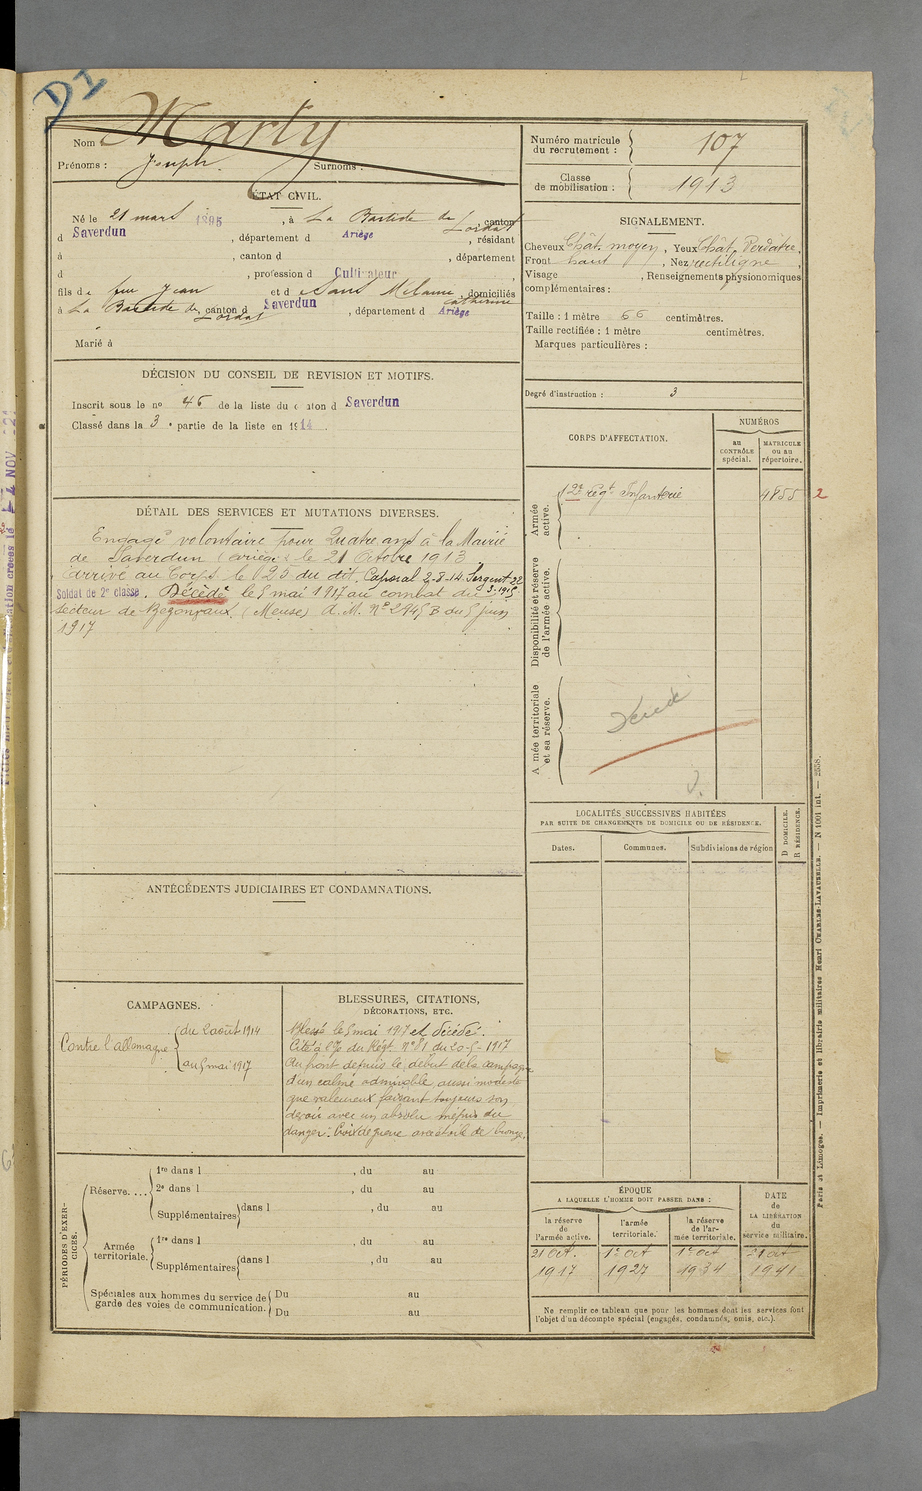 D1
Nom Marty
Prénoms : Joseph. Surnoms :
ÉTAT CIVIL.
Né le 21 mars 1895, à La Bastide de Lordat, canton
d Saverdun, département d Ariège, résidant
à , canton d , département
d , profession d Cultivateur,
fils de feu Jean et de Sans Mélanie Catherine, domiciliés
à La Bastide de Lordat, canton d Saverdun, département d Ariège
Marié à
DÉCISION DU CONSEIL DE REVISION ET MOTIFS.
Inscrit sous le no 46 de la liste du canton d Saverdun
Classé dans la 3e partie de la liste en 1914.
DÉTAIL DES SERVICES ET MUTATIONS DIVERSES.
Engagé volontaire pour Quatre ans à la Mairie
de Saverdun (Ariège) le 21 Octobre 1913
Arrivé au Corps le 23 du dit. Caporal 2-8-14. Sergent 22
3-1915.
Soldat de 2e classe. Décédé le 5 mai 1917 au combat du
secteur de Bezonvaux. (Meuse) A.M. No 2945 B du 5 juin
1917
ANTÉCÉDENTS JUDICIAIRES ET CONDAMNATIONS.
CAMPAGNES.
Contre l'allemagne { du 2 août 1914
au 5 mai 1917
BLESSURES, CITATIONS,
DÉCORATIONS, ETC.
Blessé le 5 mai 1917 et décédé.
Cité à l'O/ du Régt No 81 du 20-5-1917
Au front depuis le début de la campagne
d'un calme admirable, aussi modeste
que valeureux faisant toujours son
devoir avec un absolu mépris du
danger. Croix de guerre avec étoile de bronze.
PÉRIODES D'EXERCICES.
Réserve.... 1re dans l , du au
2e dans l , du au
Supplémentaires dans l , du au
Armée territoriale. 1re dans l , du au
Supplémentaires dans l , du au
Spéciales aux hommes du service de garde des voies de communication. Du au
Du au
Numéro matricule
du recrutement : 107
Classe
de mobilisation : 1913
SIGNALEMENT.
Cheveux Chât. moyen, Yeux Chât. Verdâtre,
Front haut, Nez rectiligne,
Visage , Renseignements physionomiques
complémentaires :
Taille : 1 mètre 66 centimètres.
Taille rectifiée : 1 mètre centimètres.
Marques particulières :
Degré d'instruction : 3
CORPS D'AFFECTATION.
NUMÉROS
au CONTRÔLE spécial.
MATRICULE ou au répertoire.
Armée active.
12e régt Infanterie 4855 2
Disponibilité et réserve de l'armée active.
Armée territoriale et sa réserve.
Décédé
LOCALITÉS SUCCESSIVES HABITÉES
PAR SUITE DE CHANGEMENTS DE DOMICILE OU DE RÉSIDENCE.
Dates. Communes. Subdivisions de région
D DOMICILE.
R RÉSIDENCE.
ÉPOQUE
A LAQUELLE L'HOMME DOIT PASSER DANS :
la réserve de l'armée active.
l'armée territoriale.
la réserve de l'armée territoriale.
DATE de LA LIBÉRATION du service militaire.
21 Oct. 1er oct 1er oct 21 oct
1917 1927 1934 1941
Ne remplir ce tableau que pour les hommes dont les services font
l'objet d'un décompte spécial (engagés, condamnés, omis, etc.).
Paris et Limoges. — Imprimerie et librairie militaires Henri CHARLES-LAVAUZELLE. — N 1001 int. — 2558.
4 NOV